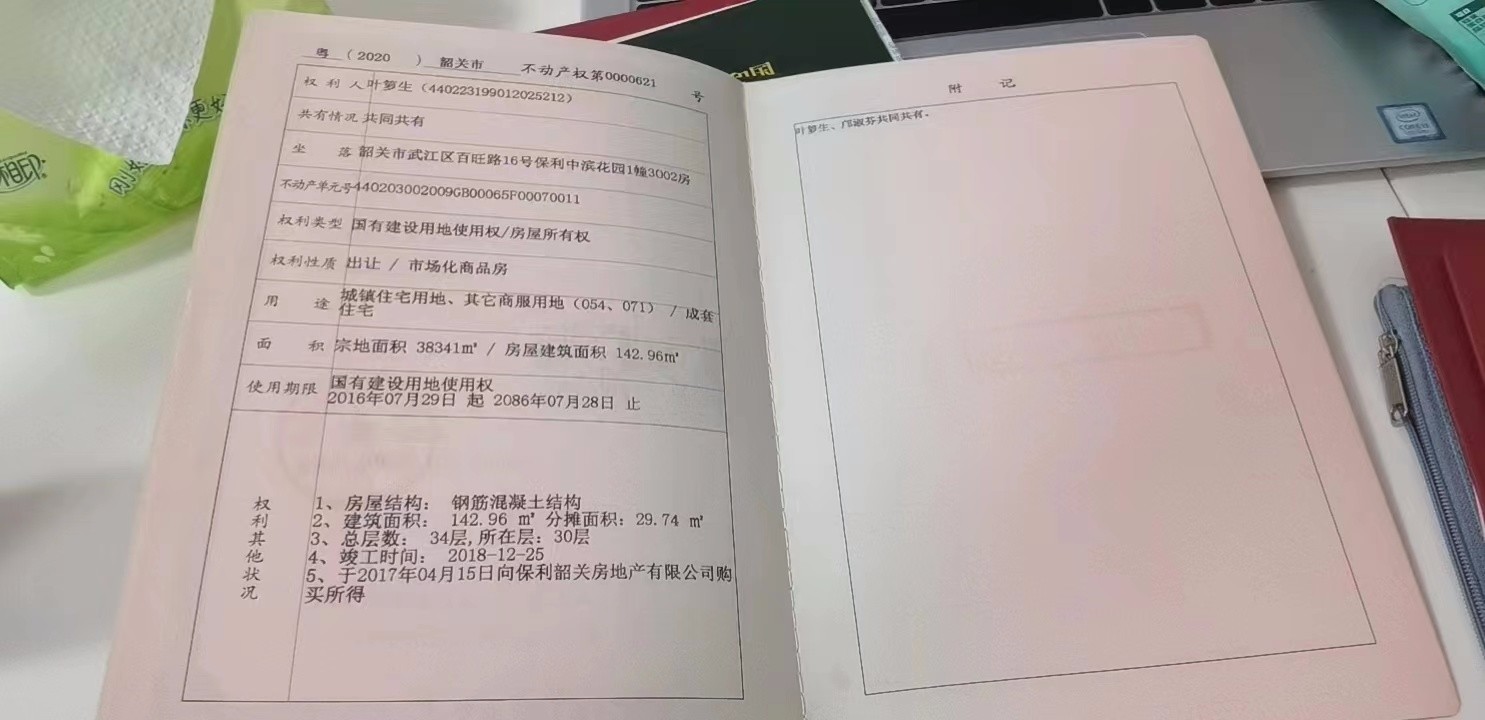 粤（2020）韶关市 不动产权第0000621号
权利人 叶箩生（440223199012025212）
共有情况 共同共有
坐落 韶关市武江区百旺路16号保利中滨花园1幢3002房
不动产单元号 440203002009GB00065F00070011
权利类型 国有建设用地使用权/房屋所有权
权利性质 出让 / 市场化商品房
用途 城镇住宅用地、其它商服用地（054、071） / 成套
住宅
面积 宗地面积 38341㎡ / 房屋建筑面积 142.96㎡
使用期限 国有建设用地使用权
2016年07月29日 起 2086年07月28日 止
权利其他状况
1、房屋结构： 钢筋混凝土结构
2、建筑面积： 142.96 ㎡ 分摊面积：29.74 ㎡
3、总层数： 34层,所在层：30层
4、竣工时间： 2018-12-25
5、于2017年04月15日向保利韶关房地产有限公司购
买所得
附记
叶箩生、邝淑芬共同共有。
国
相印
intel
CORE i5